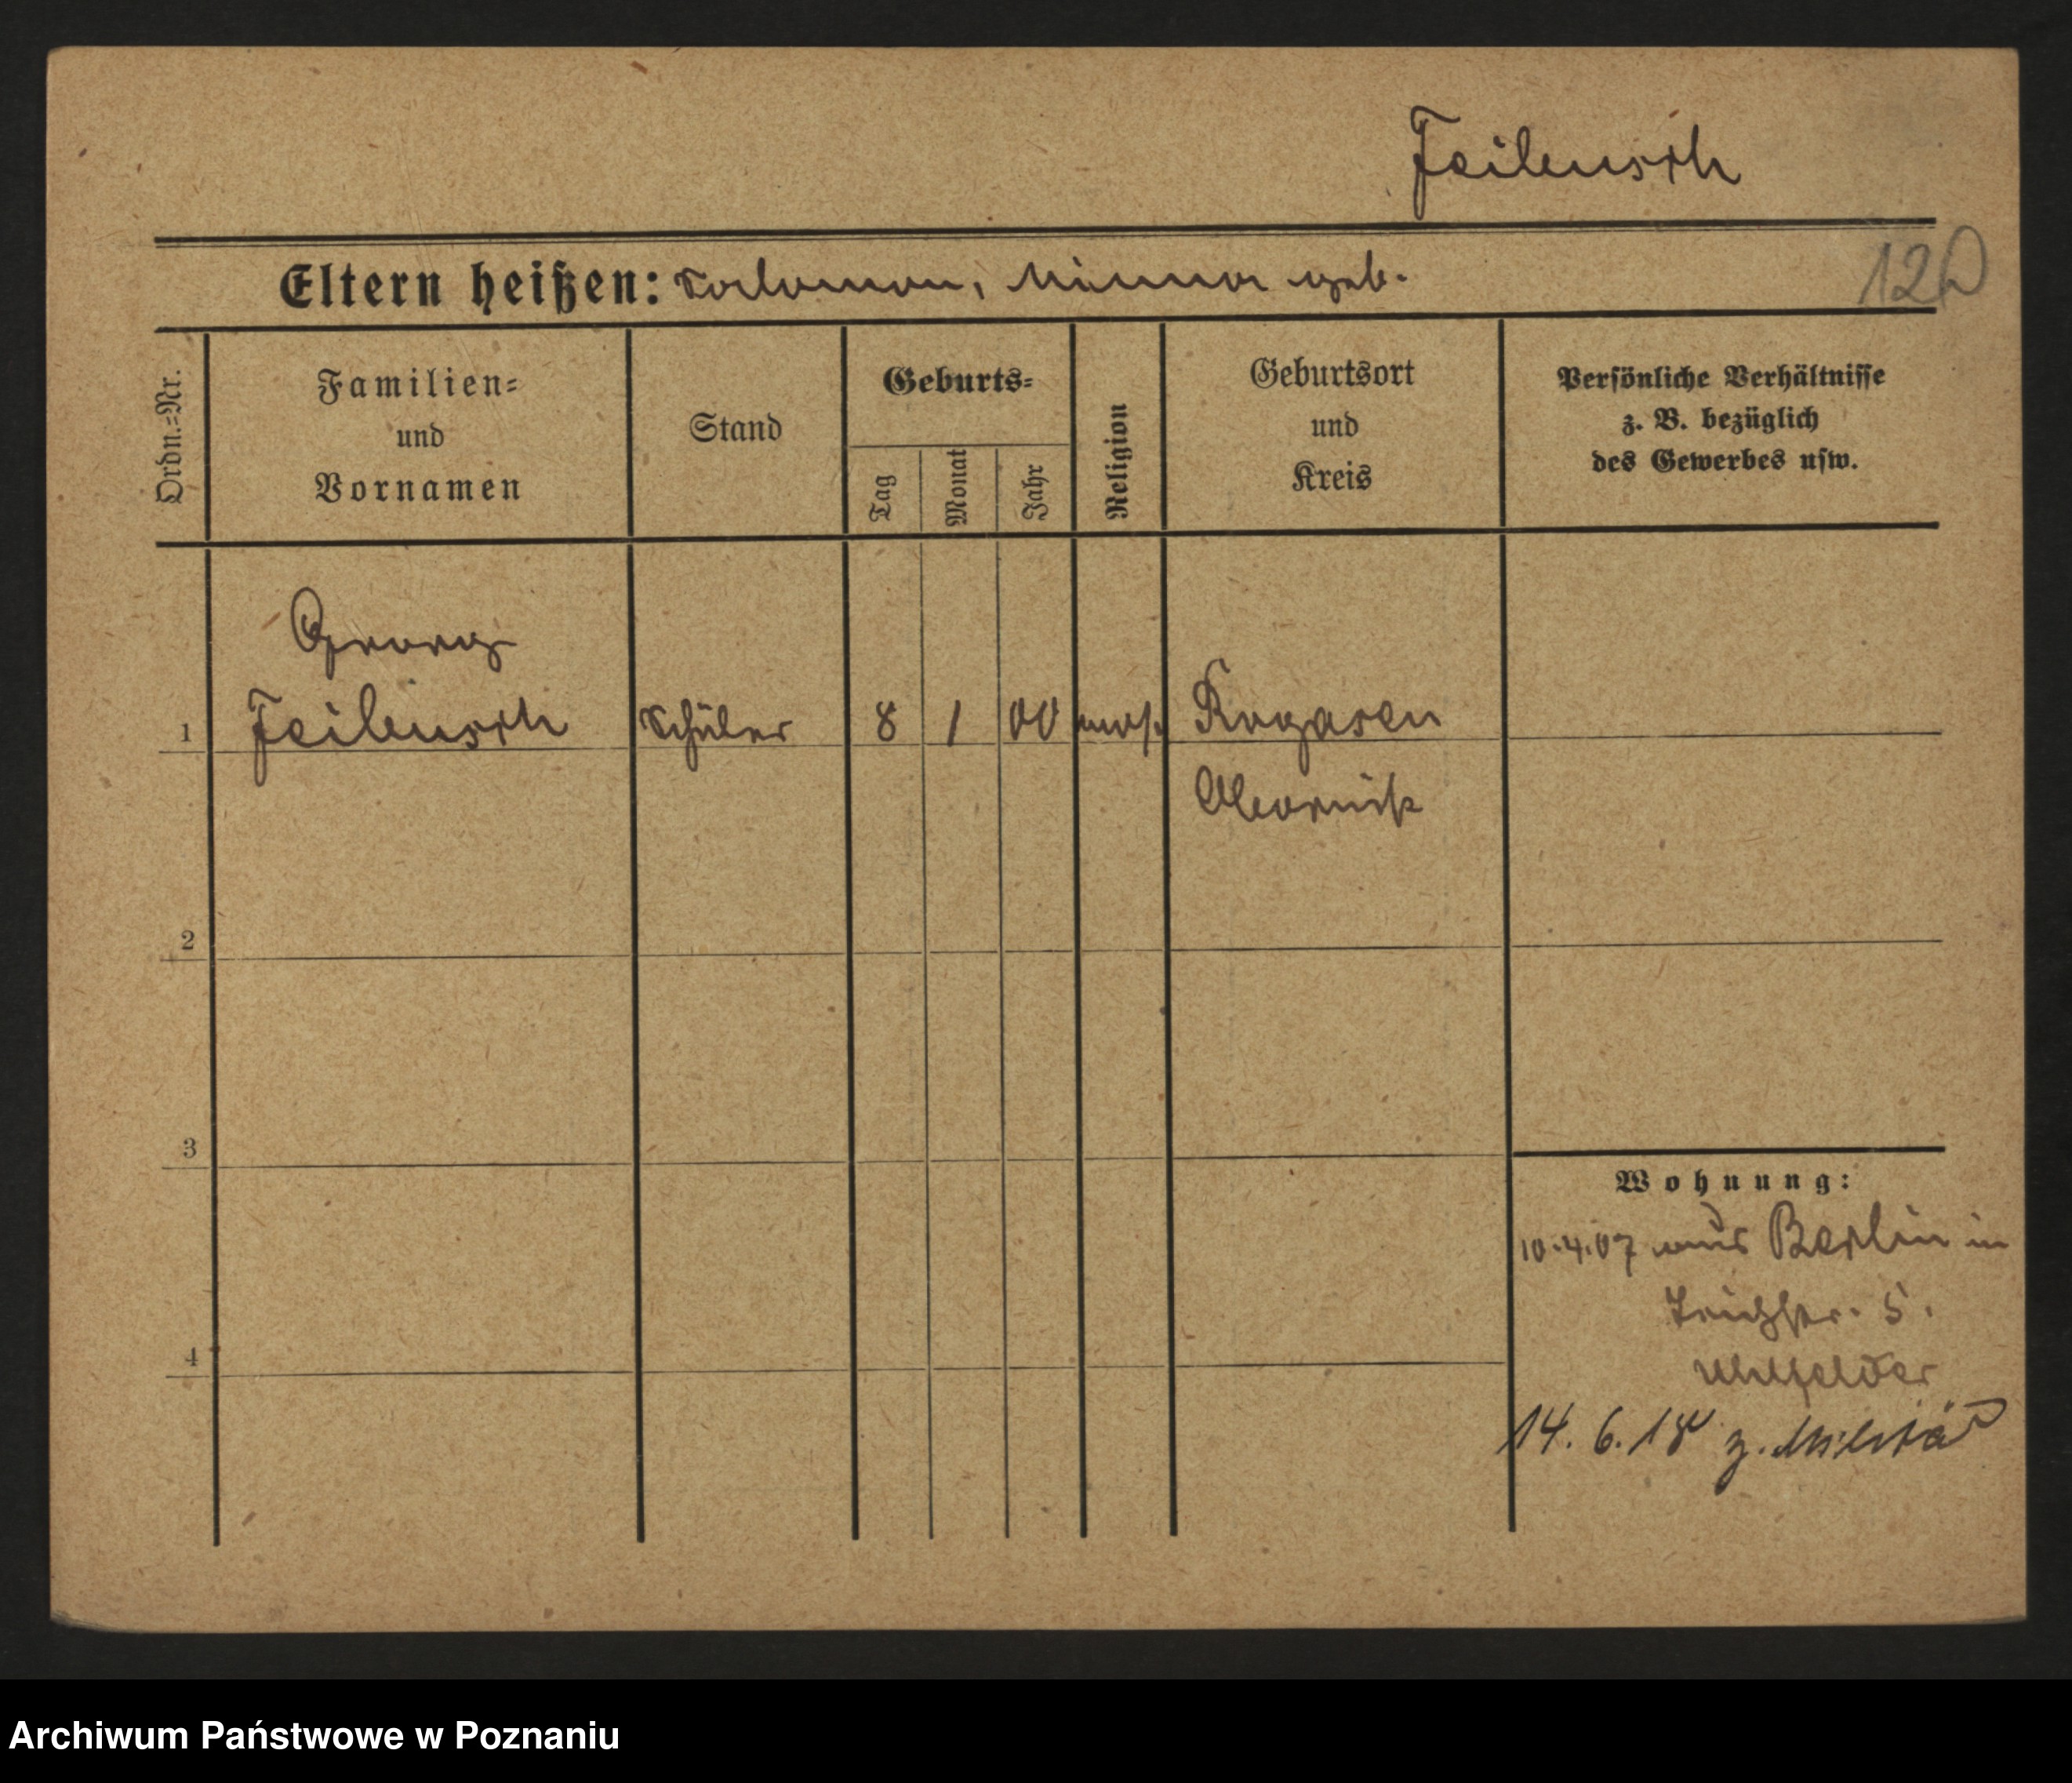 Feilensch
120
Eltern heißen: Salomon, Minna geb.
Ordn.=Nr.
Familien=
und
Vornamen
Stand
Geburts=
Tag
Monat
Jahr
Religion
Geburtsort
und
Kreis
Persönliche Verhältnisse
z. B. bezüglich
des Gewerbes usw.
Georg
1 Feilensch Schüler 8 1 00 mos. Rogasen
Obornik
2
3
Wohnung:
10.4.07 aus Berlin in
Teichstr. 5.
4
Uhlfelder
14. 6. 18 z. Militär
Archiwum Państwowe w Poznaniu